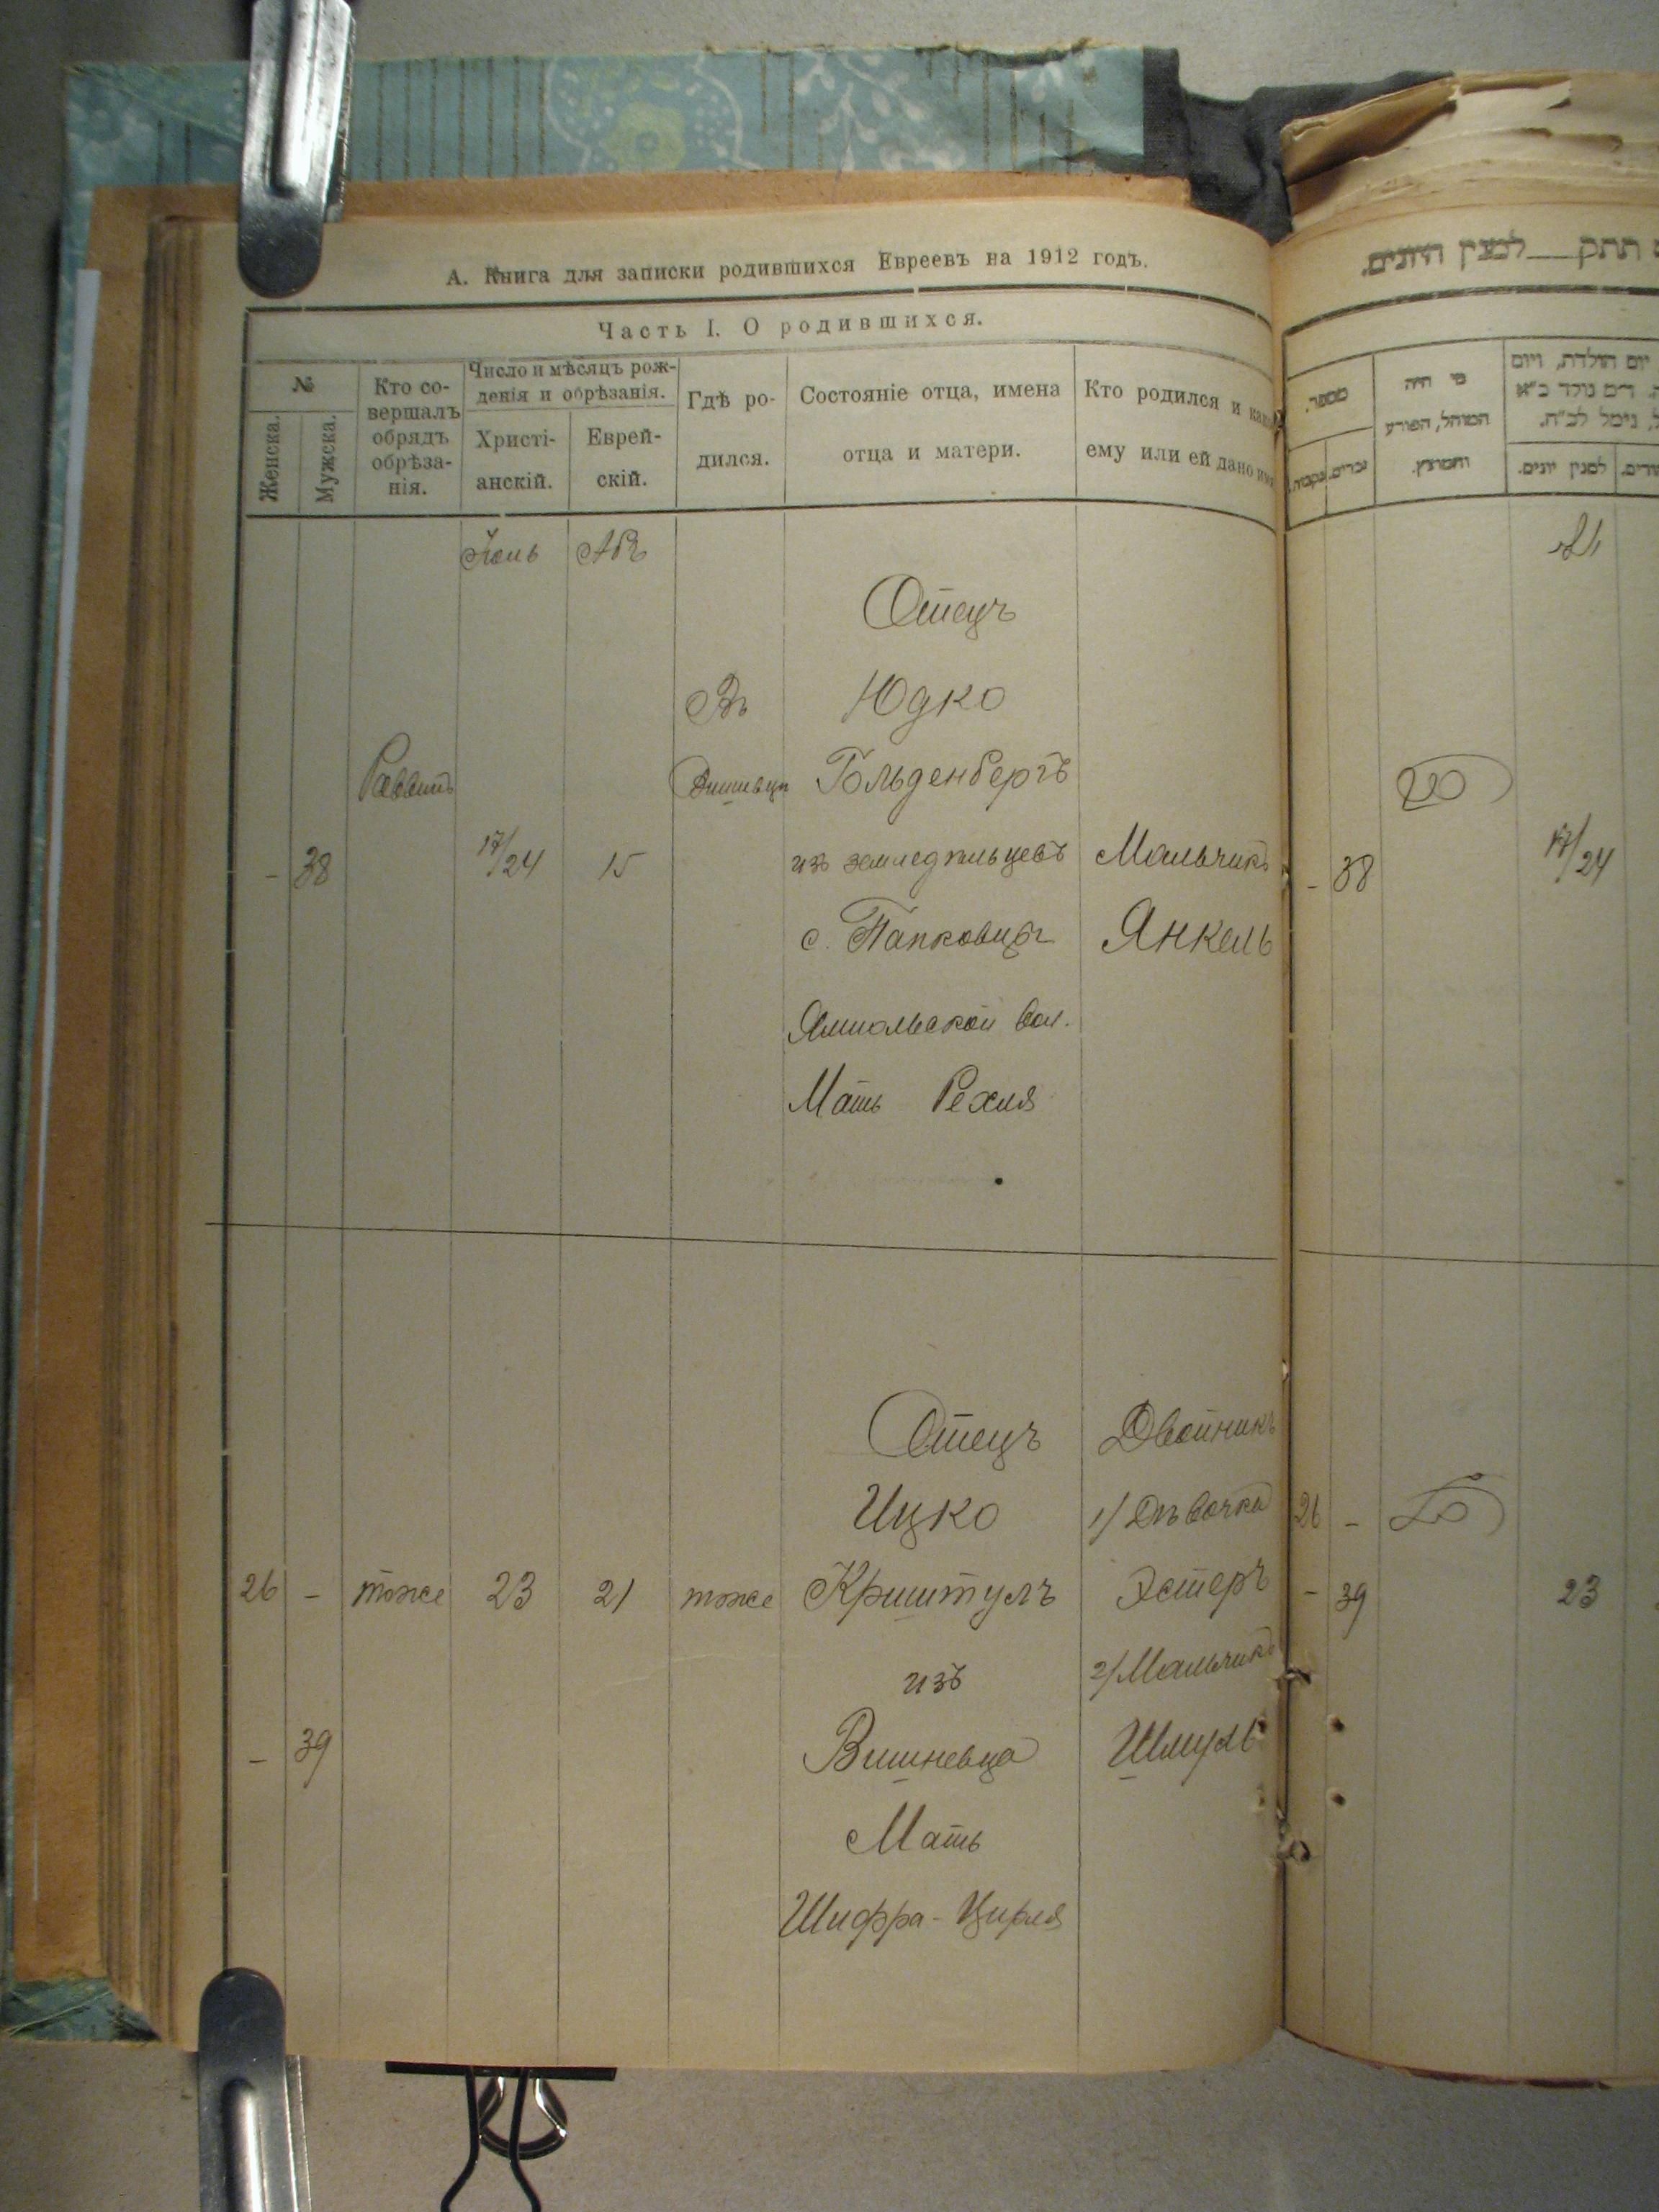 А. Книга для записки родившихся Евреевъ на 1912 годъ.
Часть I. О родившихся.
№
Женска.
Мужска.
Кто со-
вершалъ
обрядъ
обрѣза-
нія.
Число и мѣсяцъ рож-
денія и обрѣзанія.
Христі-
анскій.
Еврей-
скій.
Гдѣ ро-
дился.
Состояніе отца, имена
отца и матери.
Кто родился и како
ему или ей дано имя
Іюль
Абъ
- 38
Раввинъ
17/24
15
Въ
Вишневцѣ
Отецъ
Юдко
Гольденбергъ
изъ земледѣльцевъ
с. Папковецъ
Ямпольской вол.
Мать Рехля
Мальчикъ
Янкель
26 -
- 39
тоже
23
21
тоже
Отецъ
Ицко
Криштулъ
изъ
Вишневца
Мать
Шифра-Цирля
Двойникъ
1) Дѣвочка
Эстеръ
2) Мальчикъ
Шмуль
תתק — למנין היונים.
מספר.
נקבות.
זכרים.
מי היה
המוהל, הפורע
והמוצץ.
יום הולדת, ויום
למנין יונים.
- 38
17/24
26 -
- 39
23